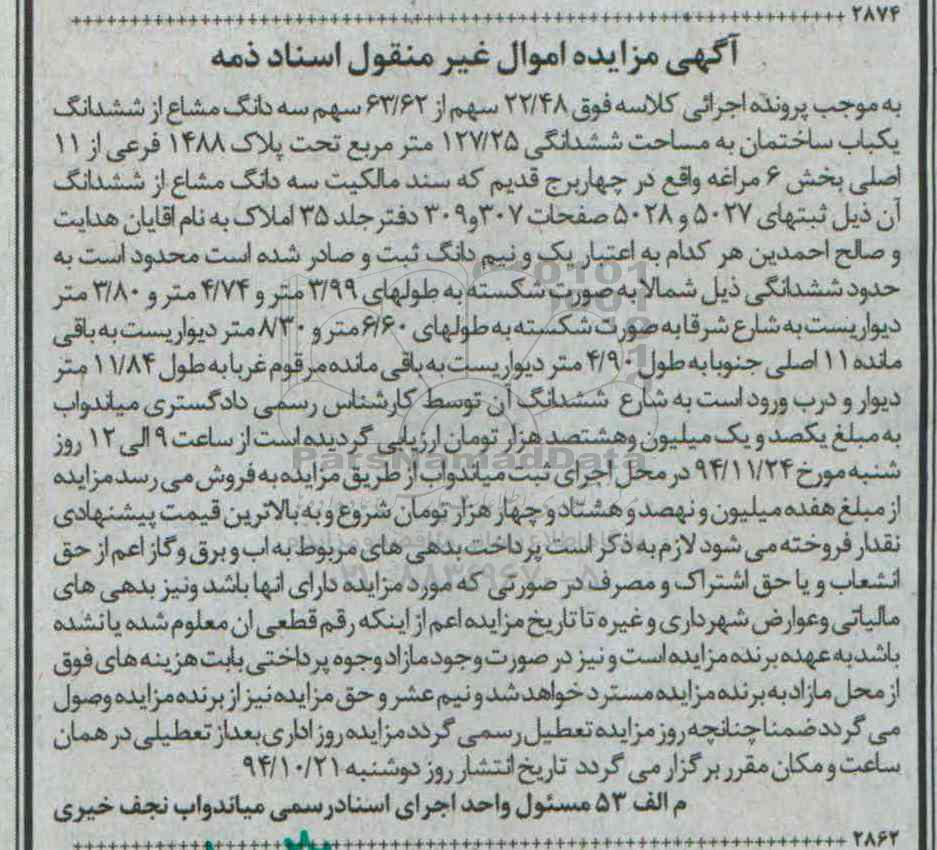 ۲۸۷۴
آگهی مزایده اموال غیر منقول اسناد ذمه
به موجب پرونده اجرائی کلاسه فوق ۲۲/۴۸ سهم از ۶۳/۶۲ سهم سه دانگ مشاع از ششدانگ
یکباب ساختمان به مساحت ششدانگی ۱۲۷/۲۵ متر مربع تحت پلاک ۱۴۸۸ فرعی از ۱۱
اصلی بخش ۶ مراغه واقع در چهاربرج قدیم که سند مالکیت سه دانگ مشاع از ششدانگ
آن ذیل ثبتهای ۵۰۲۷ و ۵۰۲۸ صفحات ۳۰۷و۳۰۹ دفتر جلد ۳۵ املاک به نام اقایان هدایت
و صالح احمدین هر کدام به اعتبار یک و نیم دانگ ثبت و صادر شده است محدود است به
حدود ششدانگی ذیل شمالا به صورت شکسته به طولهای ۳/۹۹ متر و ۴/۷۴ متر و ۳/۸۰ متر
دیواریست به شارع شرقا به صورت شکسته به طولهای ۶/۶۰ متر و ۸/۳۰ متر دیواریست به باقی
مانده ۱۱ اصلی جنوبا به طول ۴/۹۰ متر دیواریست به باقی مانده مرقوم غربا به طول ۱۱/۸۴ متر
دیوار و درب ورود است به شارع ششدانگ آن توسط کارشناس رسمی دادگستری میاندواب
به مبلغ یکصد و یک میلیون وهشتصد هزار تومان ارزیابی گردیده است از ساعت ۹ الی ۱۲ روز
شنبه مورخ ۹۴/۱۱/۲۴ در محل اجرای ثبت میاندواب از طریق مزایده به فروش می رسد مزایده
از مبلغ هفده میلیون و نهصد و هشتاد و چهار هزار تومان شروع و به بالاترین قیمت پیشنهادی
نقدار فروخته می شود لازم به ذکر است پرداخت بدهی های مربوط به اب و برق و گاز اعم از حق
انشعاب و یا حق اشتراک و مصرف در صورتی که مورد مزایده دارای انها باشد ونیز بدهی های
مالیاتی وعوارض شهرداری و غیره تا تاریخ مزایده اعم از اینکه رقم قطعی ان معلوم شده یا نشده
باشد به عهده برنده مزایده است و نیز در صورت وجود مازاد وجوه پرداختی بابت هزینه های فوق
از محل مازاد به برنده مزایده مسترد خواهد شد و نیم عشر و حق مزایده نیز از برنده مزایده وصول
می گردد ضمنا چنانچه روز مزایده تعطیل رسمی گردد مزایده روز اداری بعداز تعطیلی در همان
ساعت و مکان مقرر برگزار می گردد تاریخ انتشار روز دوشنبه ۹۴/۱۰/۲۱
م الف ۵۳ مسئول واحد اجرای اسنادرسمی میاندواب نجف خیری
۲۸۶۲
ParsNamadData